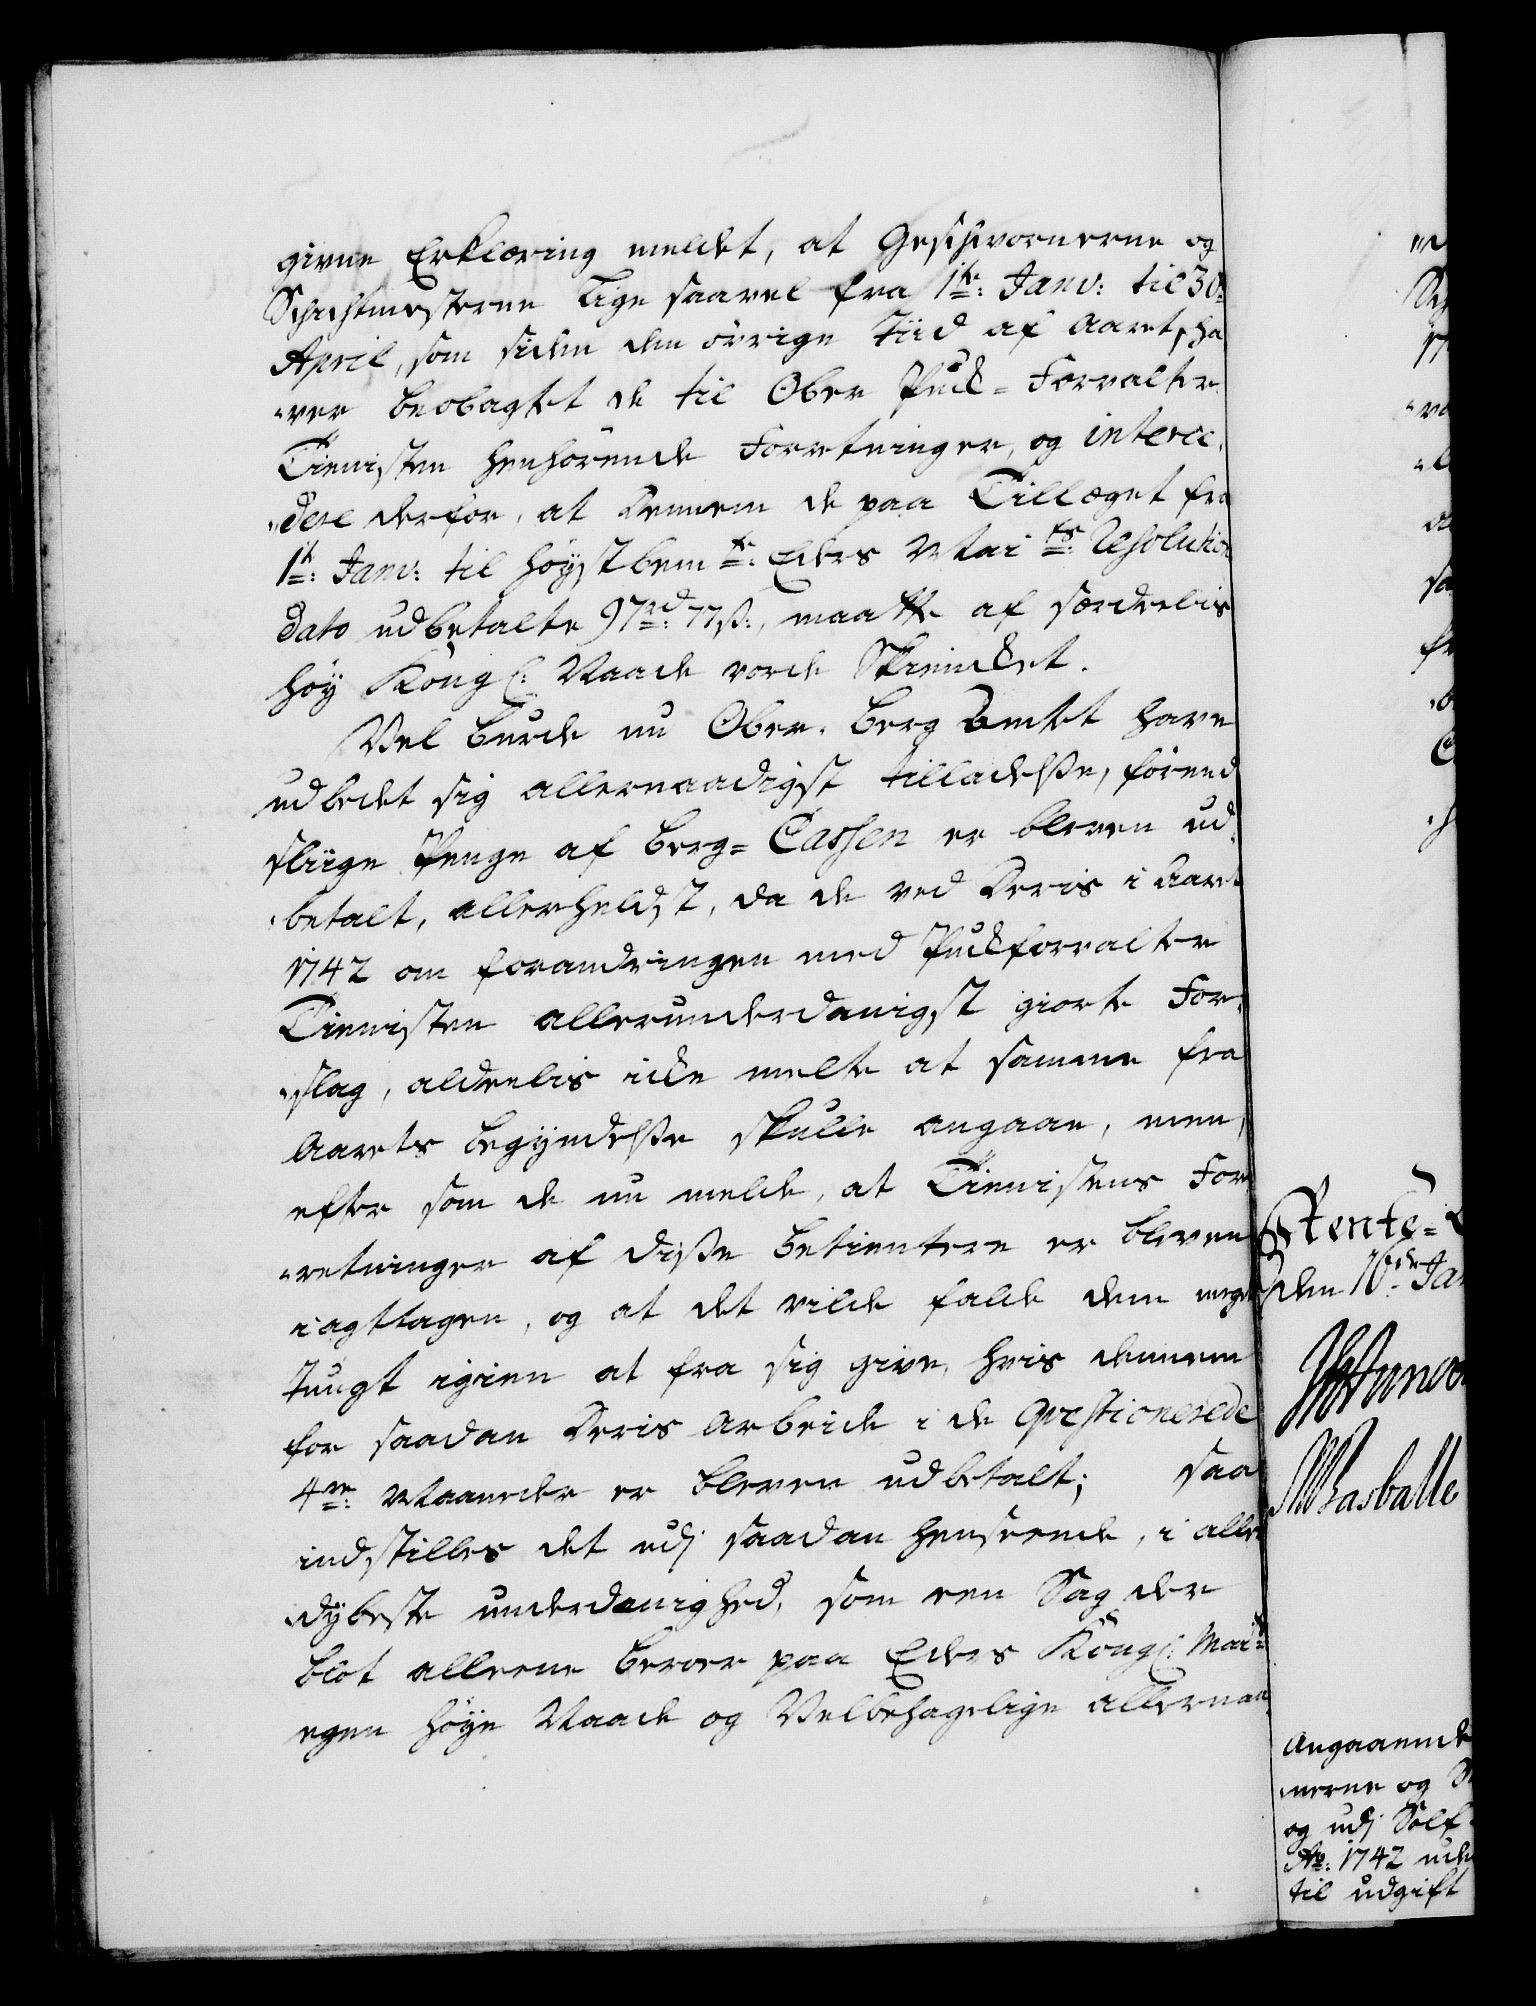 givne Erklæring meldet, at Geschwornerne og
Schichtmesterne lige saavel fra 1te: Janv: til 30:
April, som siden den övrige Tiid af Aaret, ha
-ver beobagtet de til Ober Puck-Forvalter
Tienisten henhörende Forretninger, og interce-
-dere derfor, at dennem de paa Tillæget fra
1te: Janv: til höystbemte: Eders Maits: Resolution
dato udbetalte 97rd: 77ß:, maatte af særdeelis
höy Kongl: Naade vorde Skienket.
Vel burde nu Ober-Berg Amtet have
udbedet sig allernaadigst tilladelße, förend
sliige Penge af Berg-Cassen er bleven ud-
-betalt, allerheldst, da de ved deris i Aaret
1742 om forandringen med Puckforvalter
Tienisten allerunderdanigst giorte For-
-slag, aldeelis icke melte at samme fra
Aarets begyndelße skulle angaae, men,
efter som de nu melde, at Tienistens For
-retninger af diße betientere er bleven
iagttagen, og at det vilde falde dem meget
tungt igien at fra sig give, hvis dennem
for saadan deris Arbeide i de Qvestionerede
4re: Maaneder er bleven udbetalt; saa
indstilles det udj saadan henseende, i aller
-dybeste underdanighed, som een Sag der
blot alleene beroer paa Eders Kongl: Maits:
egen höye Naade og Velbehagelige allernaa
Rente-
den 16de Jan
Rasballe
Angaaende
-nerne og
og udj Sölf
Ao: 1742 ude
til udgift